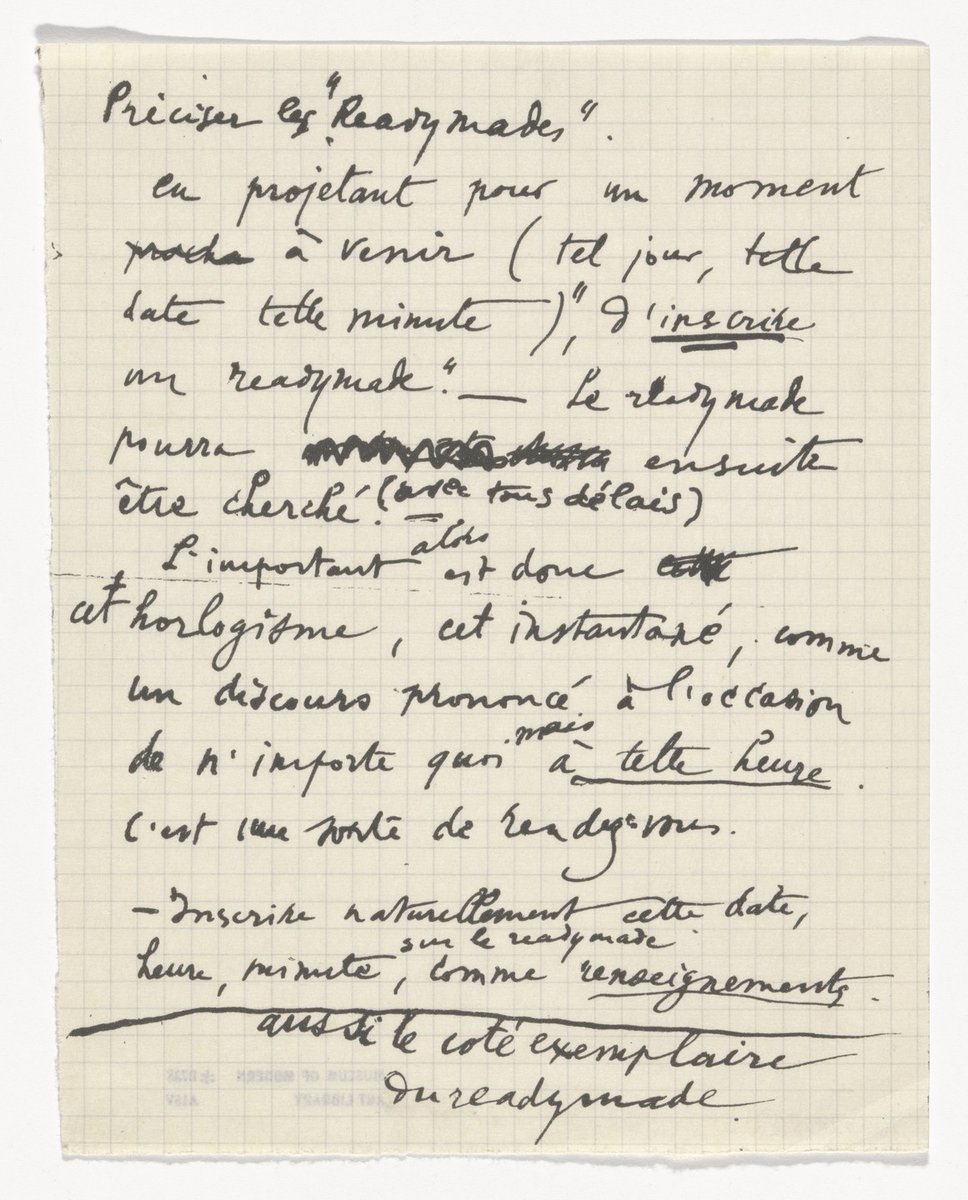 Préciser les "Readymades".
en projetant pour un moment
proche à venir (tel jour, telle
date telle minute), "d'inscrire
un readymade". — Le readymade
pourra ensuite
être cherché. (avec tous délais)
L'important alors est donc
cet horlogisme, cet instantané, comme
un discours prononcé à l'occasion
de n'importe quoi mais à telle heure.
C'est une sorte de rendez-vous.
— Inscrire naturellement cette date,
heure, minute, sur le readymade comme renseignements.
aussi le coté exemplaire
du readymade.
MUSEUM OF MODERN
ART LIBRARY